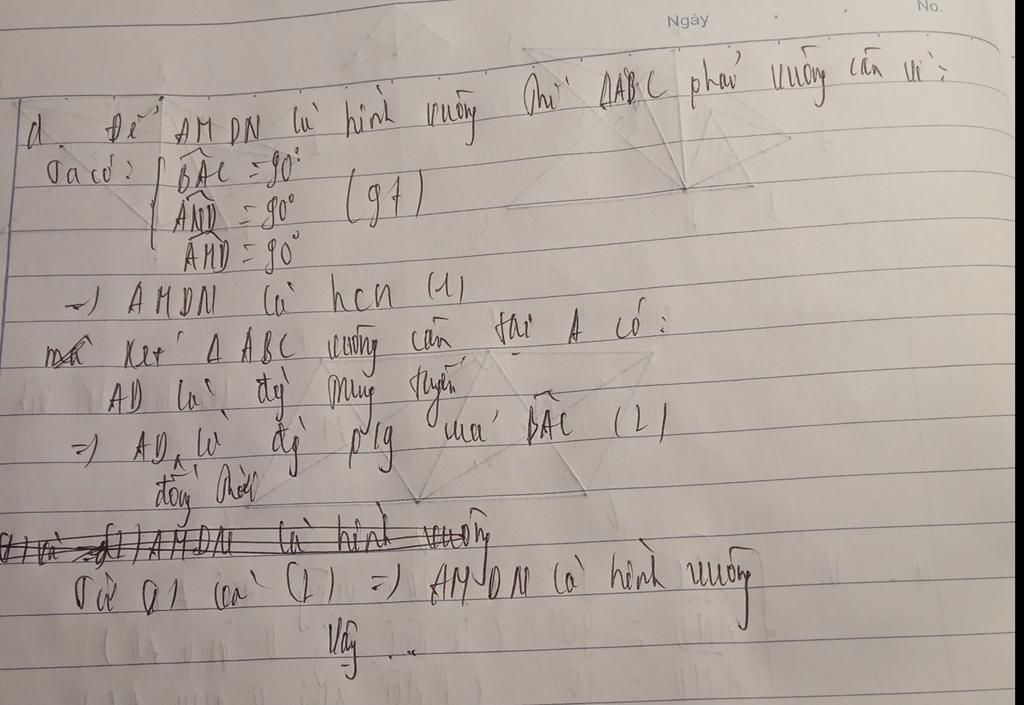 Ngày
No.
d. Để AMDN là hình vuông thì ΔABC phải vuông cân vì:
Ta có: BÂC = 90°
AND = 90° (gt)
AMD = 90°
=> AMDN là hcn (1)
Xét Δ ABC vuông cân tại A có:
AD là đg trung tuyến
=> AD là đg p/g của BÂC (2)
đồng thời
(1) và (2) AMDN là hình vuông
Từ (1) và (2) => AMDN là hình vuông
Vậy ...